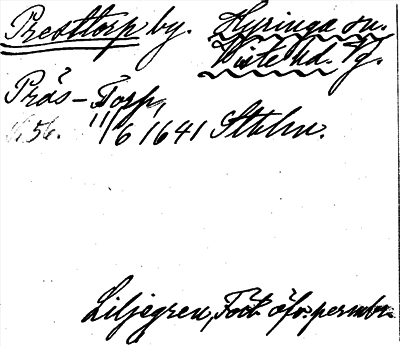 Presttorp by. Kyringa sn.
Viste hd. Vg.
Präs-Torp,
11/6 1641 Sthlm.
Liljegren, Fört. öfv. permbr.